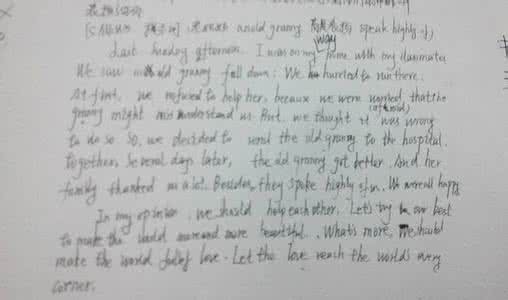 an old granny speak highly of
Last Sunday afternoon. I was on my way home with my classmates
We saw old granny fall down. We hurried to run there.
At first, we refused to help her, because we were worried that the
(afraid)
granny might misunderstand us. But. we thought it was wrong
to do so. So, we decided to send the old granny to the hospital.
together. Several days later, the old granny got better. And her
family thanked us a lot. Besides, they spoke highly of us. We were all happy
In my opinion, we should help each other. Let's try our best
to make the world more and more beautiful. What's more, we should
make the world full of love. Let the love reach the world's every
corner.